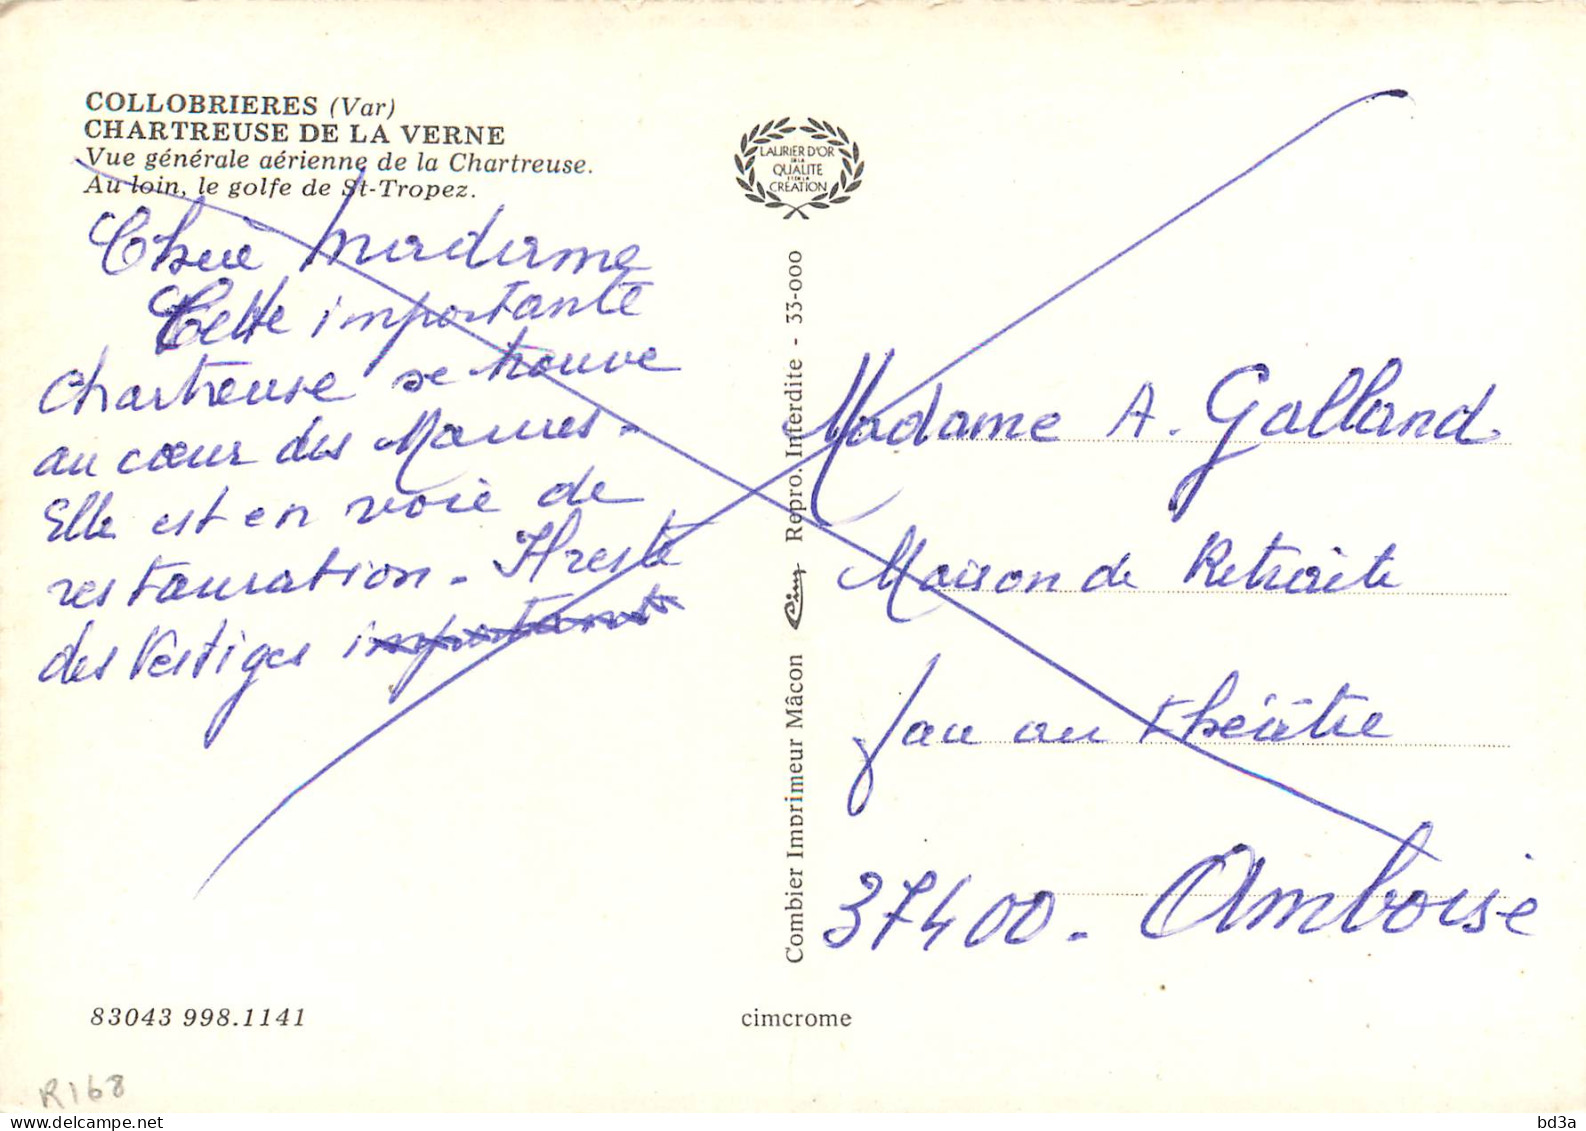 COLLOBRIERES (Var)
CHARTREUSE DE LA VERNE
Vue générale aérienne de la Chartreuse.
Au loin, le golfe de St-Tropez.
Chère Madame
Cette importante
chartreuse se trouve
au cœur des Maures.
Elle est en voie de
restauration. Il reste
des Vestiges important
LAURIER D'OR
DE LA
QUALITE
ET DE LA
CREATION
Combier Imprimeur Mâcon Cim Repro. Interdite - 33-000
Madame A. Galland
Maison de Retraite
face au théâtre
37400 - Amboise
83043 998.1141
cimcrome
R168
delcampe.net
bd3a